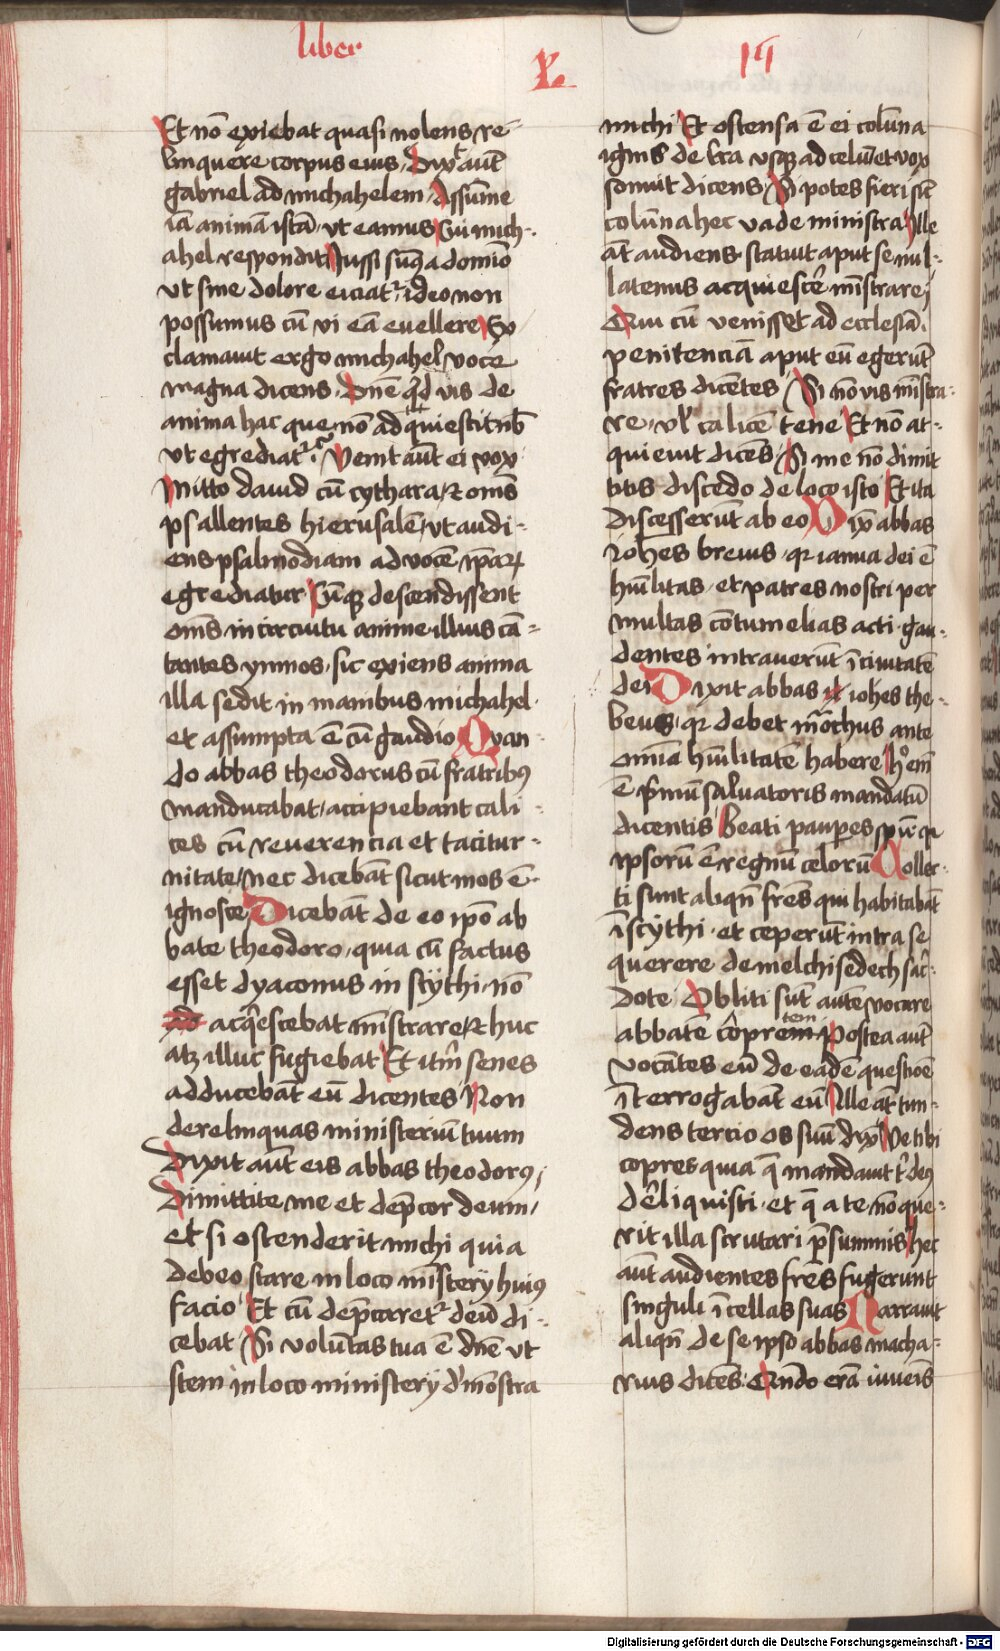 liber
X
iii
Et nō exiebat quasi nolens re-
linquere corpus eius. Dixit aūt
gabriel ad michahelem. Assūme
iā animā istā. vt eamus Cui mich-
ahel respondit Iussi sum9 a domīo
vt sine dolore eiciat2. ideo non
possumus cū vi eā euellere Ex
clamauit ergo michahel voce
magna dicens. Dn̄e qd vis de
anima hac que nō adquiescit nob
vt egrediat2. Venit aūt ei vox
Mitto dauid cū cythara. et om̄s
psallentes hierusalē. vt audi-
ens psalmodiam ad vocē ip̄ar
egrediatur Cūq3 descendissent
om̄s in circuitu anime illius cā-
tantes ymnos. sic exiens anima
illa sedit in manibus michahel.
et assumpta ē cū gaudio Quan
do abbas theodorus cū fratribus
manducabat, accipiebant cali-
ces cū reuerencia et tacitur-
nitate, nec dicebāt sicut mos ē.
ignosce Dicebāt de eo ip̄o ab
bate theodoro, quia cū factus
esset dyaconus in scythi. nō
acq̄escebat mīstrare et huc
atz illuc fugiebat Et itm̄ senes
adducebāt eū dicentes Non
derelinquas ministeriū tuum
Dixit aūt eis abbas theodorus
Dimittite me et dep̄cor deum,
et si ostenderit michi quia
debeo stare in loco mīstery huius
facio Et cū dep̄caret2 deū di-
cebat Si voluntas tua ē dn̄e vt
stem in loco ministery dmōstra
michi Et ostensa ē ei colūna
ignis de tr̄a vsq3 ad celū et vox
sonuit dicens. Si potes fieri sic̄
colūna hec vade ministra Ille
āt audiens statuit aput se nul-
latenus acquiescē mīstrare
Qui cū venisset ad ecclesiā.
penitenciā aput eū egerūt
fratres dicētes. Si nō vis mīstra-
re. vl' calicē tene Et nō ac-
quieuit dicēs. Si me nō dimit
titis discedo de loco isto Et ita
discesserūt ab eo Dix̄ abbas
ioh̄es breuis. qr ianua dei ē
hūilitas. et patres nostri per
multas cōtumelias acti. gau-
dentes intrauerūt ī ciuitatē
dei Dixit abbas ioh̄es the-
beus. qr debet mōchus ante
omīa hūilitatē habere h' em̄
ē p̄mū saluatoris mandatū
dicentis Beati paup̄es sp̄u qr
ipsorū ē regnū celorū Collec-
ti sunt aliqn̄ fr̄es qui habitabāt
ī scythi. et ceperūt intra se
querere de melchisedech sac̄-
dote Obliti sūt autē vocare
abbatē copretem Postea aūt
vocātes eū de eadē questiōe
īterrogabāt eū Ille āt tun-
dens tercio os suū dix̄ Ve tibi
copres quia q̄ mandauit t' deus
d'eliquisti. et q̄ a te nō que-
rit illa scrutari p̄sumis Hec
aūt audientes fr̄es fugerunt
singuli ī cellas suas Narrauit
aliqn̄ de se ipso abbas macha-
rius dicēs. Qn̄do erā iuuenis
Digitalisierung gefördert durch die Deutsche Forschungsgemeinschaft - DFG